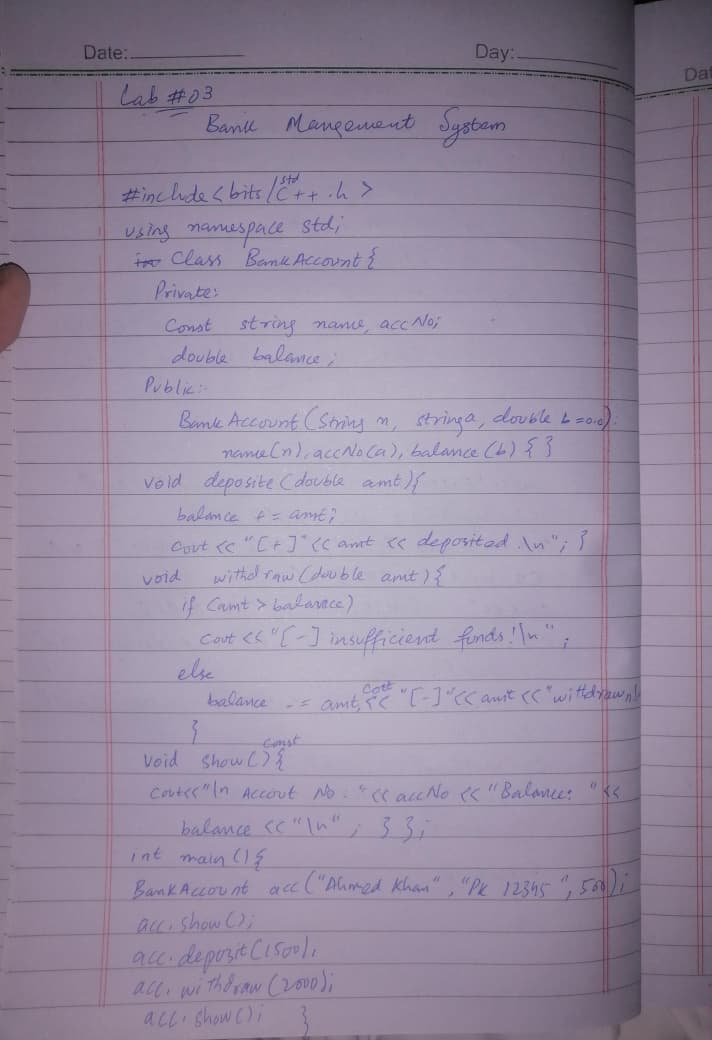 Date:
Day:
Dat
Lab #03
Bank Mangement System
#include <bits/stdC++.h>
using namespace std;
Class BankAccount {
Private:
Const string name, accNo;
double balance;
Public:-
BankAccount (String n, string a, double b =0.0):
name(n), accNo(a), balance(b) { }
void deposite (double amt){
balance += amt;
cout << "[+]" << amt << deposited.\n"; }
void withdraw (double amt) {
if (amt > balance)
cout << "[-] insufficient funds!\n";
else
balance -= amt, cout << "[-]" << amt << "withdrawn\
}
void show() const {
cout<<"\n Accout No. " << accNo << "Balance: " <<
balance << "\n"; } };
int main () {
BankAccount acc ("Ahmed Khan", "PK 12345", 500);
acc. show();
acc. deposit (1500);
acc. withdraw (2000);
acc. show(); }